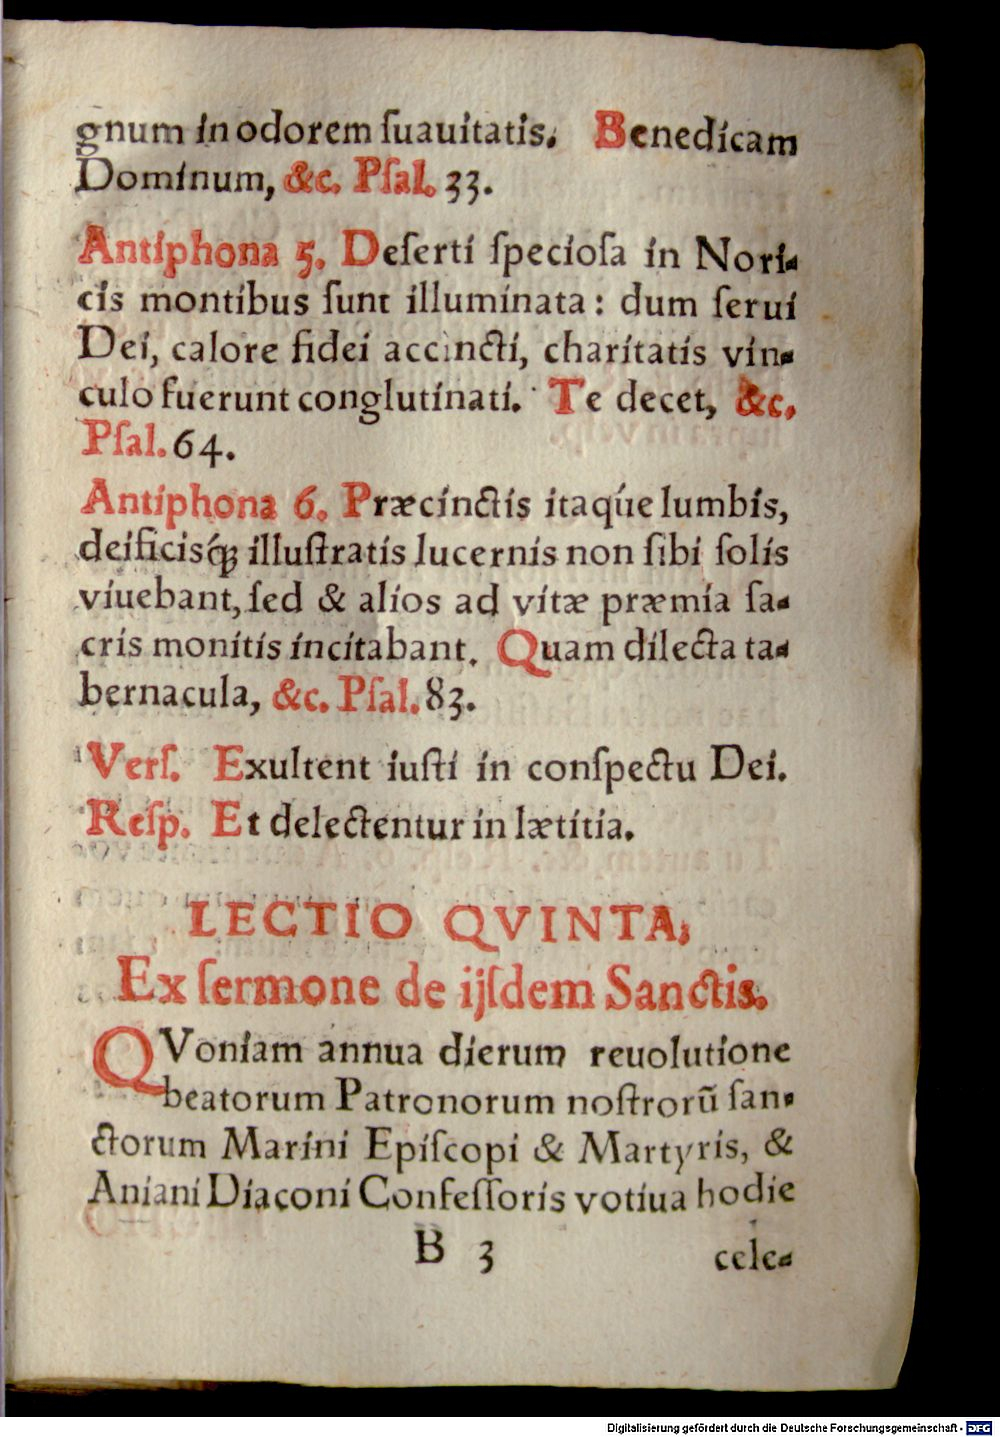 gnum in odorem ſuauitatis. Benedicam
Dominum, &c. Pſal. 33.
Antiphona 5. Deſerti ſpecioſa in Nori-
cis montibus ſunt illuminata: dum ſerui
Dei, calore fidei accincti, charitatis vin-
culo fuerunt conglutinati. Te decet, &c.
Pſal. 64.
Antiphona 6. Præcinctis itaq́ue lumbis,
deificisq́; illuſtratis lucernis non ſibi ſolis
viuebant, ſed & alios ad vitæ præmia ſa-
cris monitis incitabant. Quam dilecta ta-
bernacula, &c. Pſal. 83.
Verſ. Exultent iuſti in conſpectu Dei.
Reſp. Et delectentur in lætitia.
LECTIO QVINTA,
Ex ſermone de ijſdem Sanctis.
QVoniam annua dierum reuolutione
beatorum Patronorum noſtrorũ ſan-
ctorum Marini Epiſcopi & Martyris, &
Aniani Diaconi Confeſſoris votiua hodie
B 3 cele-
Digitalisierung gefördert durch die Deutsche Forschungsgemeinschaft - DFG